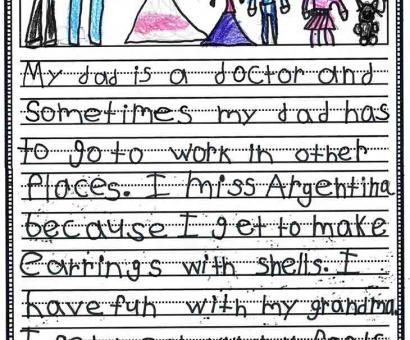 My dad is a doctor and
Sometimes my dad has
to go to work in other
Places. I miss Argentina
because I get to make
Earrings with shells. I
have fun with my grandma.
I